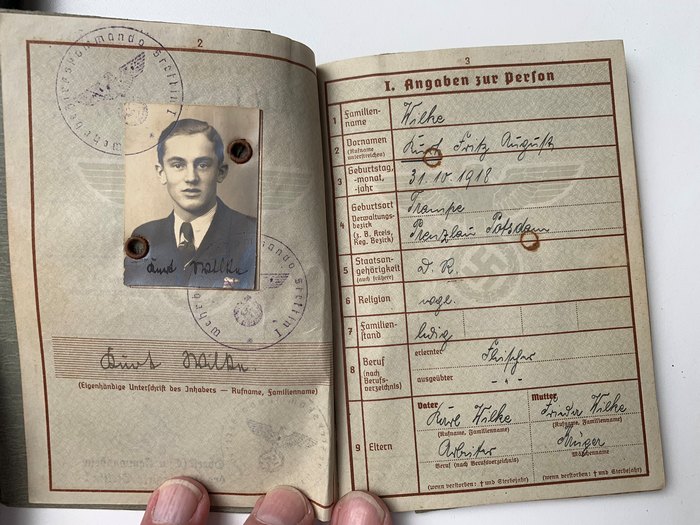 2
Wehrbezirkskommando Stettin I
Kurt Wilke
Wehrbezirkskommando Stettin I
Kurt Wilke
(Eigenhändige Unterschrift des Inhabers — Rufname, Familienname)
3
I. Angaben zur Person
1 Familien-
name
Wilke
2 Vornamen
(Rufname
unterstreichen)
Kurt Fritz August
3 Geburtstag,
-monat,
-jahr
31.10.1918
4 Geburtsort
Verwaltungs-
bezirk
(z. B. Kreis,
Reg. Bezirk)
Trampe
Prenzlau Potsdam
5 Staatsan-
gehörigkeit
(auch frühere)
D. R.
6 Religion
evgl.
7 Familien-
stand
ledig
8 Beruf
(nach
Berufs-
verzeichnis)
erlernter
Fleischer
ausgeübter
- " -
9 Eltern
Vater
Karl Wilke
(Rufname, Familienname)
Arbeiter
Beruf (nach Berufsverzeichnis)
(wenn verstorben: † und Sterbejahr)
Mutter
Frieda Wilke
(Rufname, Familienname)
Mädchenname
(wenn verstorben: † und Sterbejahr)